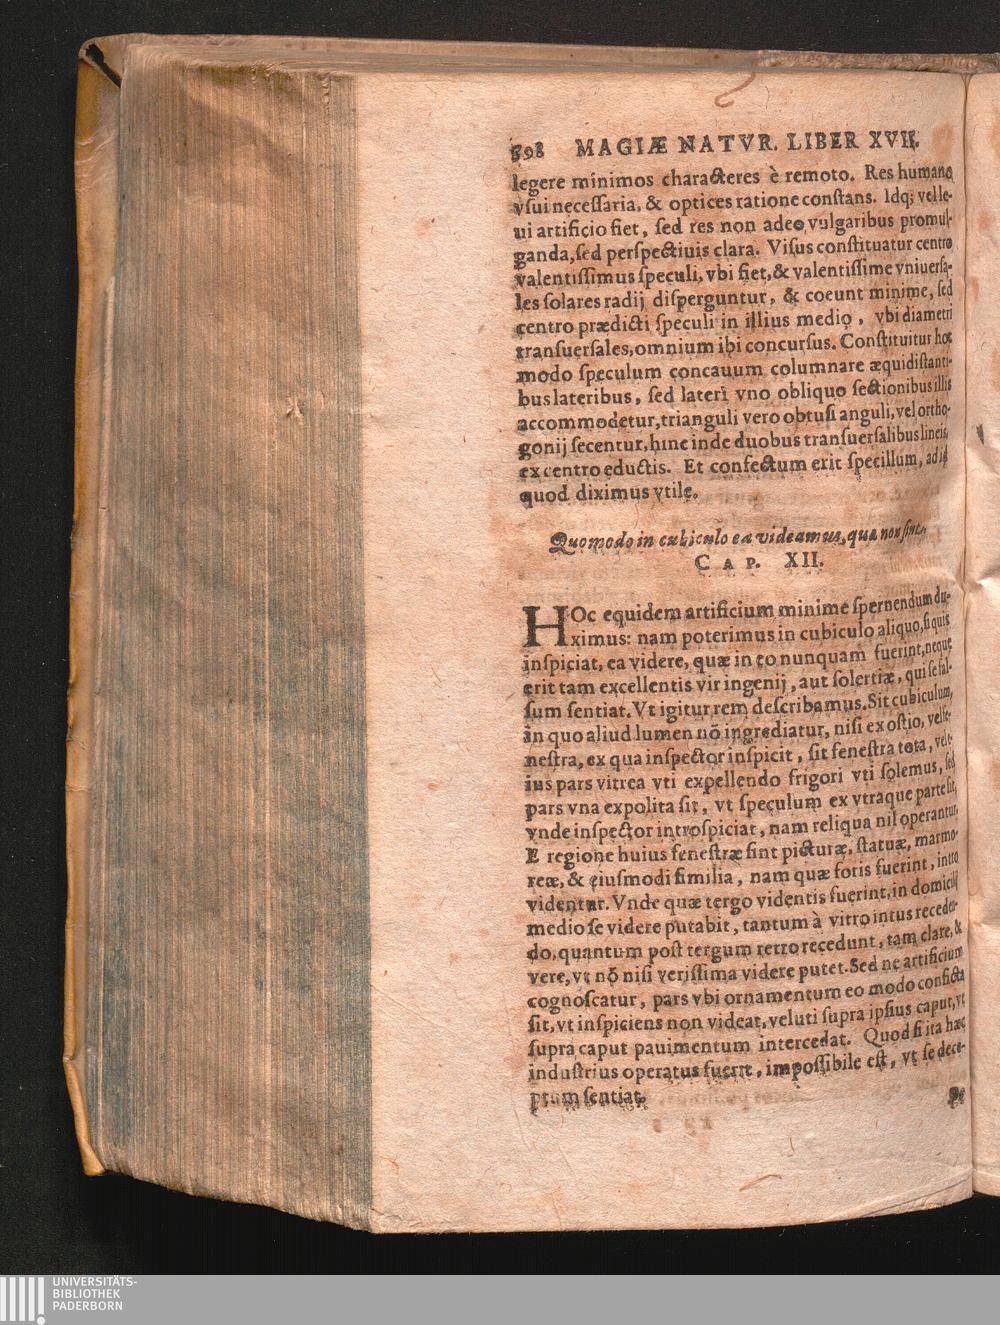 598 MAGIÆ NATVR. LIBER XVII.
legere minimos characteres è remoto. Res humano
vsui necessaria, & optices ratione constans. Idq; vel le-
ui artificio fiet, sed res non adeo vulgaribus promul-
ganda, sed perspectiuis clara. Visus constituatur centro
valentissimus speculi, vbi fiet, & valentissime vniuersa-
les solares radij disperguntur, & coeunt minime, sed
centro prædicti speculi in illius medio, vbi diametri
transuersales, omnium ibi concursus. Constituitur hoc
modo speculum concauum columnare æquidistanti-
bus lateribus, sed lateri vno obliquo sectionibus illis
accommodetur, trianguli vero obtusi anguli, vel ortho-
gonij secentur, hinc inde duobus transuersalibus lineis,
ex centro eductis. Et confectum erit specillum, ad id
quod diximus vtile.
Quomodo in cubiculo ea videamus, quæ non sint.
CAP. XII.
HOc equidem artificium minime spernendum du-
ximus: nam poterimus in cubiculo aliquo, si quis
inspiciat, ea videre, quæ in eo nunquam fuerint, neque
erit tam excellentis vir ingenij, aut solertiæ, qui se fal-
sum sentiat. Vt igitur rem describamus. Sit cubiculum,
in quo aliud lumen nō ingrediatur, nisi ex ostio, vel fe-
nestra, ex qua inspector inspicit, sit fenestra tota, vel e-
ius pars vitrea vti expellendo frigori vti solemus, sed
pars vna expolita sit, vt speculum ex vtraque parte sit,
vnde inspector introspiciat, nam reliqua nil operantur.
E regione huius fenestræ sint picturæ, statuæ, marmo-
reæ, & eiusmodi similia, nam quæ foris fuerint, intro
videntur. Vnde quæ tergo videntis fuerint, in domicilij
medio se videre putabit, tantum à vitro intus receden-
do, quantum post tergum retro recedunt, tam clare, &
vere, vt nō nisi verissima videre putet. Sed ne artificium
cognoscatur, pars vbi ornamentum eo modo conficta
sit, vt inspiciens non videat, veluti supra ipsius caput, vt
supra caput pauimentum intercedat. Quod si ita hæc
industrius operatus fuerit, impossibile est, vt se dece-
ptum sentiat.
UNIVERSITÄTS-
BIBLIOTHEK
PADERBORN